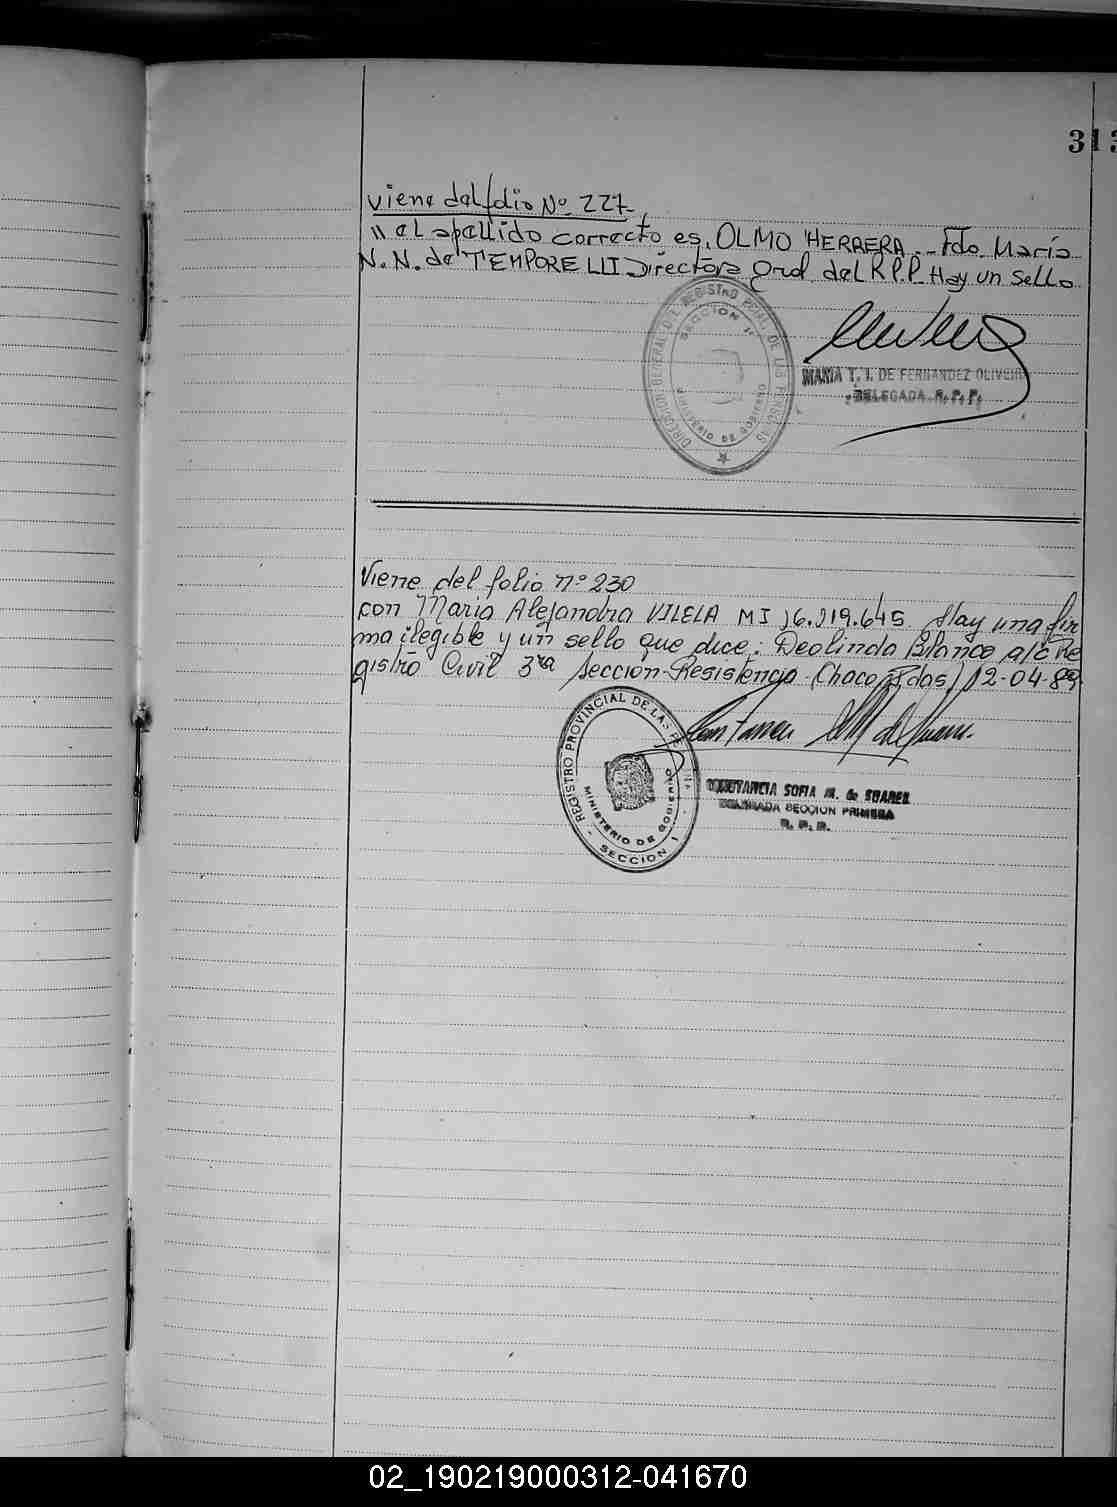 313
Viene del folio Nº 227
" el apellido correcto es, OLMO HERRERA.- Fdo. María
N. N. de TEMPORELLI Directora Gral. del R.P.P. Hay un sello
DIRECCION GENERAL DEL REGISTRO PCIAL. DE LAS PERSONAS
SECCION II
MINISTERIO DE GOBIERNO
MARIA T. I. DE FERNANDEZ OLIVEIRA
DELEGADA R. P. P.
Viene del folio nº 230
con María Alejandra VILELA MI 16.219.645 Hay una fir
ma ilegible y un sello que dice: Deolinda Blanco a/c Re
gistro Civil 3ra Sección-Resistencia-(Chaco) Fdos) 12-04-89
REGISTRO PROVINCIAL DE LAS PERSONAS
MINISTERIO DE GOBIERNO
SECCION 1
CONSTANCIA SOFIA M. de SUAREZ
DELEGADA SECCION PRIMERA
R. P. P.
02_190219000312-041670